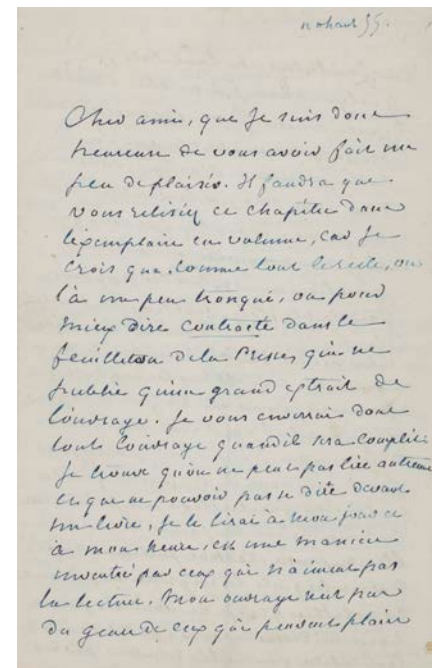 nohant 55.
Cher ami, que je suis donc
heureuse de vous avoir fait un
peu de plaisir. Il faudra que
vous relisiez ce chapitre dans
l'exemplaire en volume, car je
crois que, comme tout le reste, on
l'a un peu tronqué, ou pour
mieux dire contracté dans le
feuilleton de la Presse, qui ne
publie qu'un grand extrait de
l'ouvrage. Je vous enverrai donc
tout l'ouvrage quand il sera complet.
Je trouve qu'on ne peut pas lire autrement
et que ne pouvoir pas se dire devant
un livre, je le lirai à mon jour et
à mon heure, est une manière
inventée par ceux qui n'aiment pas
la lecture. Mon ouvrage n'est pas
du genre de ceux qui peuvent plaire